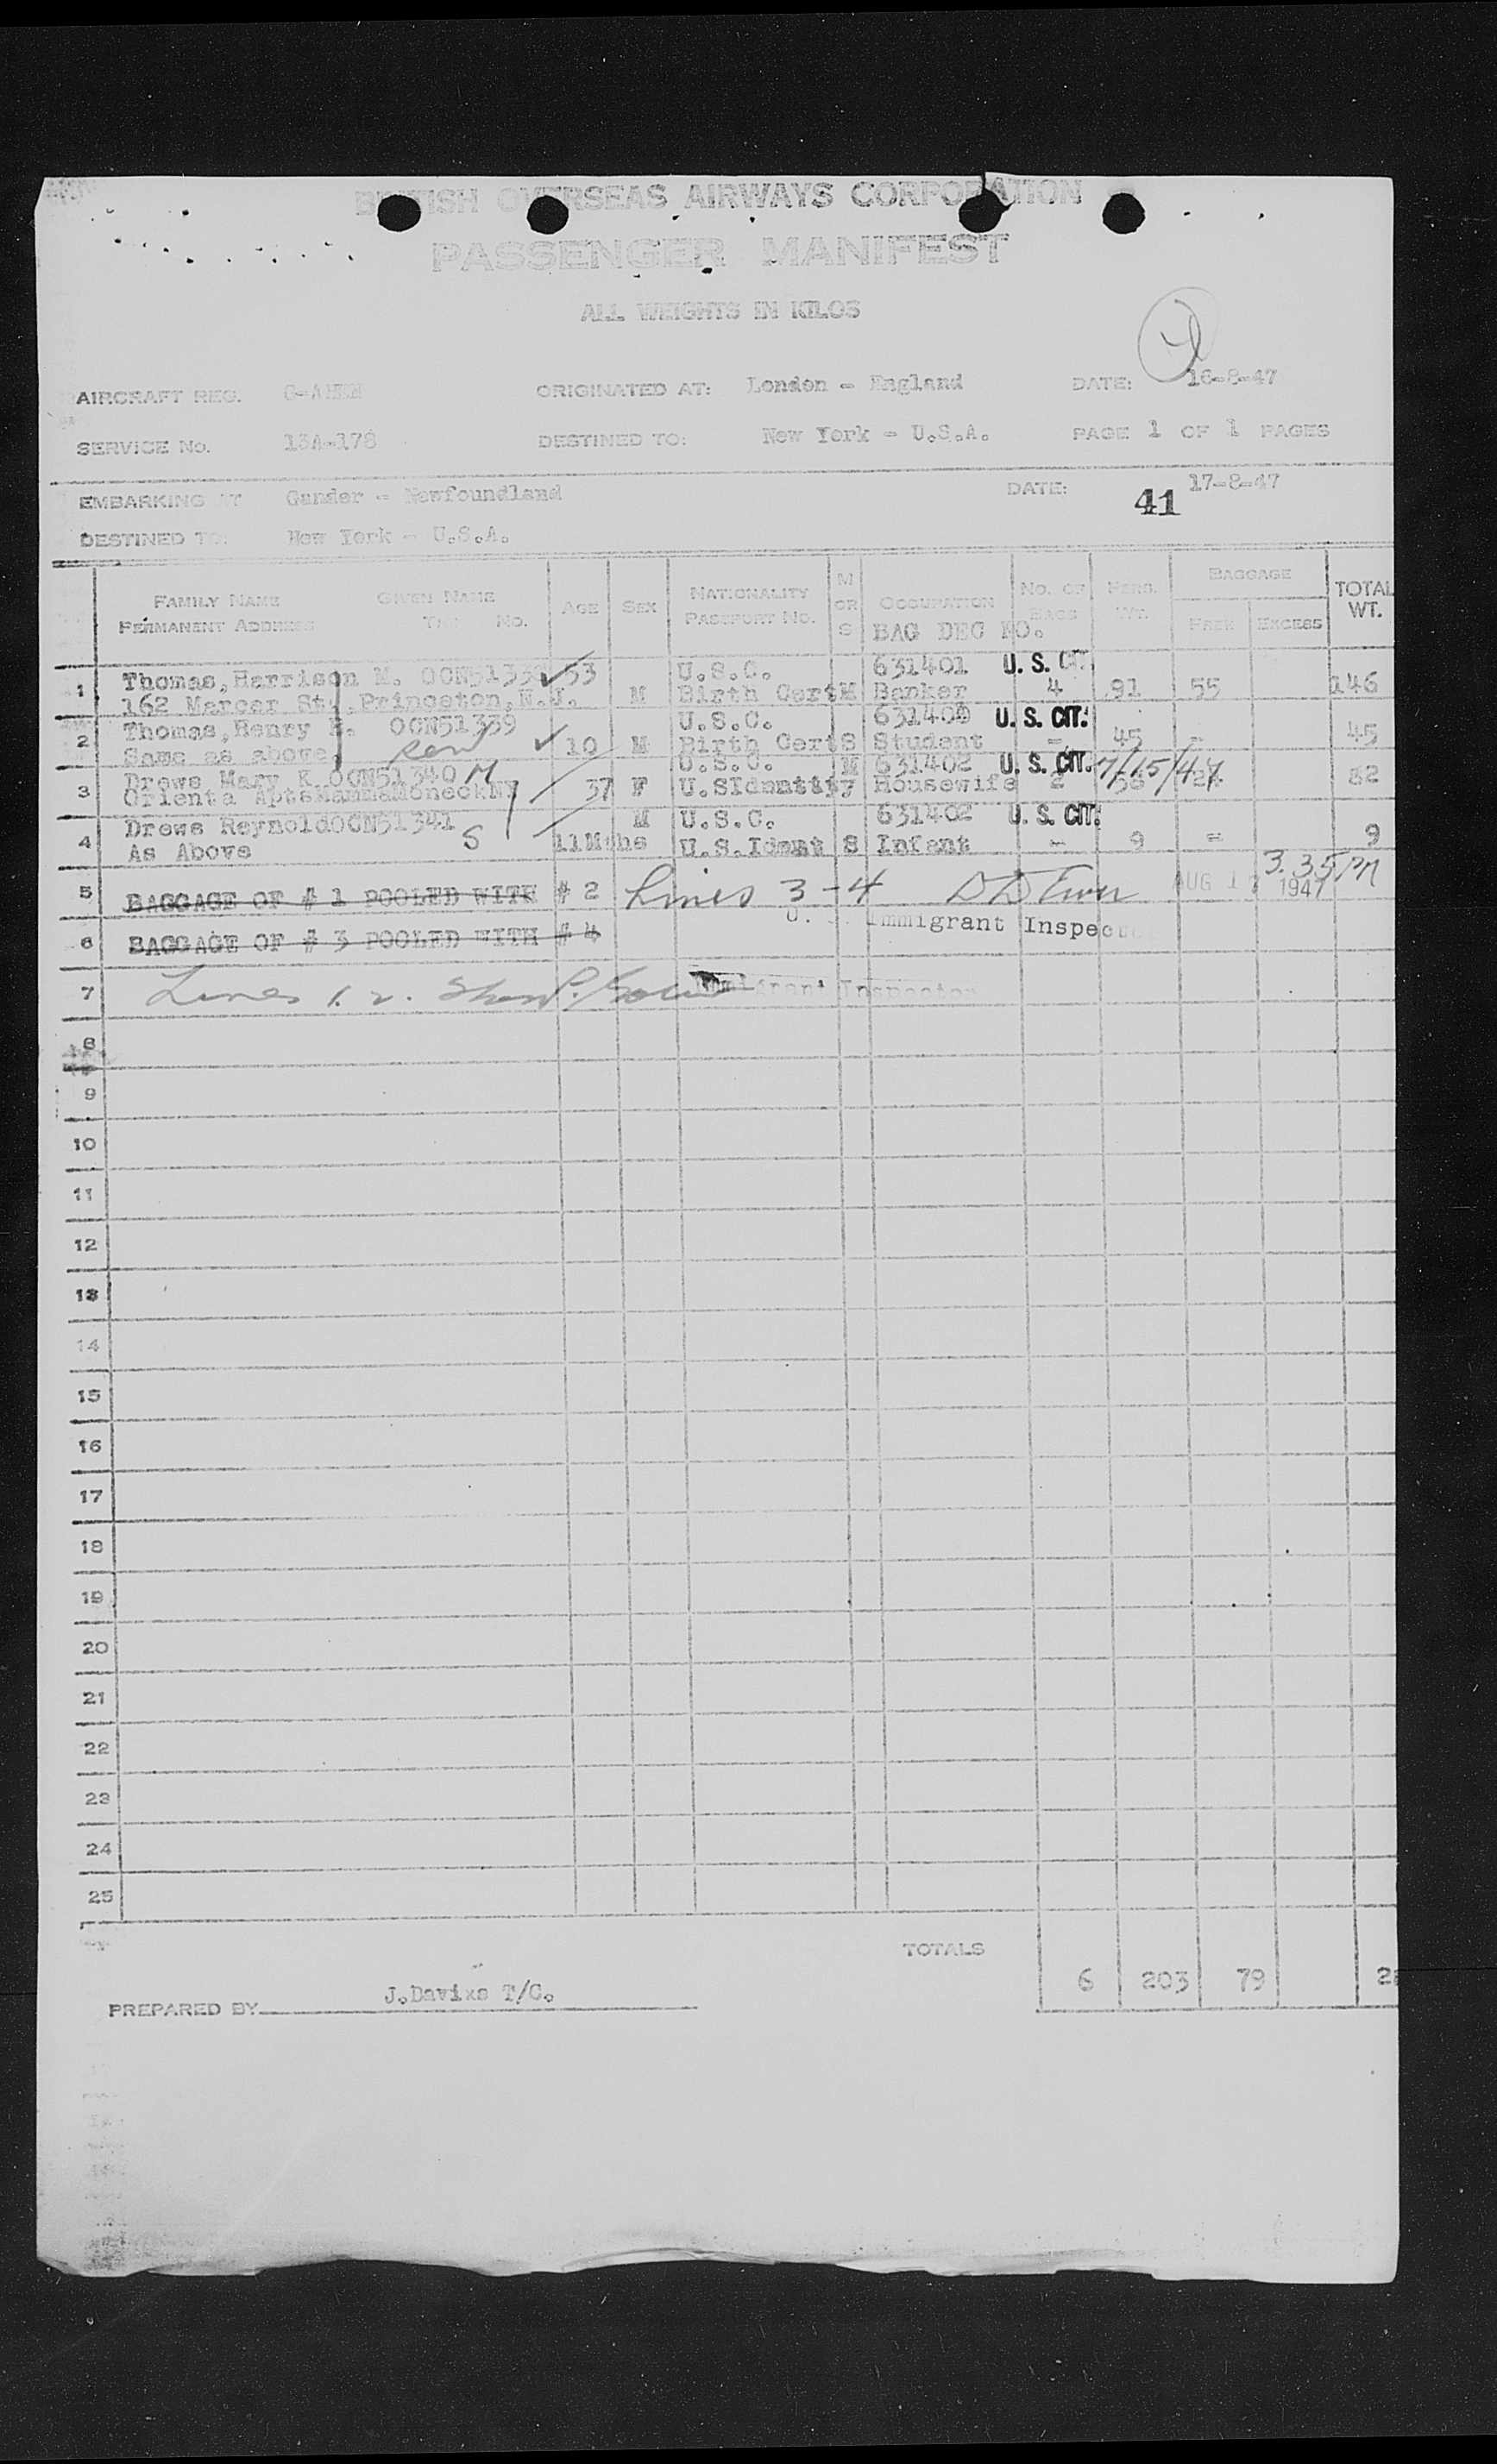 BRITISH OVERSEAS AIRWAYS CORPORATION
PASSENGER MANIFEST
ALL WEIGHTS IN KILOS
AIRCRAFT REG. ORIGINATED AT: London - England DATE: 16-8-47
SERVICE No. 13A-178 DESTINED TO: New York - U.S.A. PAGE 1 OF 1 PAGES
EMBARKING AT Gander - Newfoundland DATE: 17-8-47
41
DESTINED TO: New York - U.S.A.
FAMILY NAME GIVEN NAME AGE SEX NATIONALITY M OR S OCCUPATION No. OF BAGS PERS. WT. BAGGAGE FREE EXCESS TOTAL WT.
PERMANENT ADDRESS No. PASSPORT No. BAG DEC NO.
1 Thomas, Harrison M. 53 U.S.C. 631401 U. S. CIT.
162 Mercer St., Princeton, N.J. M Birth Cert M Banker 4 91 55 146
2 Thomas, Henry OGN51339 U.S.C. U. S. CIT.
Same as above. son 10 M Birth Cert S Student - 45 - 45
3 Drews Mary K. OGN51340 M U.S.C. M 631402 U. S. CIT. 7/15/47
Orienta Apts 37 F Housewife 2
4 Drews Reynold OGN51341 S M U.S.C. 631402 U. S. CIT.
As Above 11Mths U.S.Ident S Infant - 9 = 9
5 BAGGAGE OF # 1 POOLED WITH # 2 Lines 3-4 AUG 17 1947 3.35 PM
Immigrant Inspector
6 BAGGAGE OF # 3 POOLED WITH # 4
7 Lines 1. 2. Immigrant Inspector
8
9
10
11
12
13
14
15
16
17
18
19
20
21
22
23
24
25
TOTALS 6 203 79
PREPARED BY J.Davixs T/C.